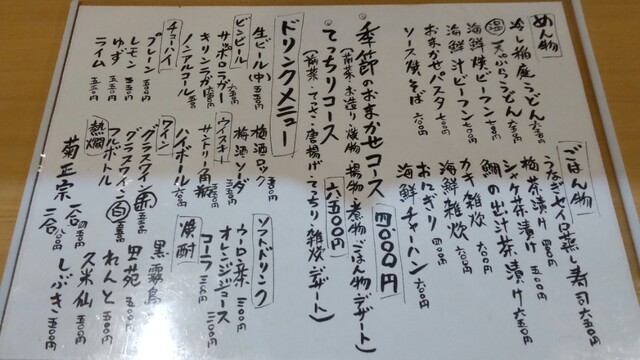 めん物
冷し稲庭うどん
温 天ぷらうどん
海鮮焼ビーフン
海鮮汁ビーフン
おまかせパスタ
ソース焼そば 六〇〇円
ごはん物
うなぎセイロ蒸し寿司 六五〇円
梅茶漬け
シャケ茶漬け 五〇〇円
鯛の出汁茶漬け 六五〇円
カキ雑炊 六〇〇円
海鮮雑炊 六〇〇円
おにぎり
海鮮チャーハン 六〇〇円
・季節のおまかせコース 四、〇〇〇円
(前菜・お造り・焼物・揚物・煮物・ごはん物・デザート)
・てっちりコース 六、五〇〇円
(前菜・てっさ・唐揚げ・てっちり・雑炊・デザート)
ドリンクメニュー
生ビール(中) 五五〇円
ビンビール
サッポロラガー
キリンラガー
ノンアルコール
チューハイ
プレーン
レモン
ゆず
ライム
梅酒ロック
梅酒ソーダ
ウイスキー
サントリー角瓶
ハイボール
ワイン
グラスワイン 赤
グラスワイン 白
フルボトル
熱燗
菊正宗 一合
二合
ソフトドリンク
ウーロン茶 三〇〇円
オレンジジュース 三〇〇円
コーラ
焼酎
黒霧島
里苑 五〇〇円
れんと 五〇〇円
久米仙 五〇〇円
しぶき 五〇〇円